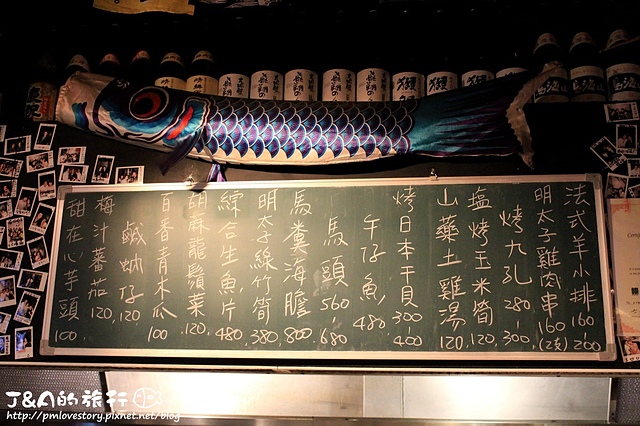 法式羊小排160 200
明太子雞肉串160(2支)
烤九孔280-300
鹽烤玉米筍120.
山藥土雞湯120.
烤日本干貝300-400
午仔魚480
馬頭560 680
馬糞海膽800
明太子絲竹筍380.
綜合生魚片480.
胡麻龍鬚菜120.
百香青木瓜100
鹹蜆仔120.
梅汁蕃茄120,
甜在心芋頭100
J&A的旅行
http://pmlovestory.pixnet.net/blog